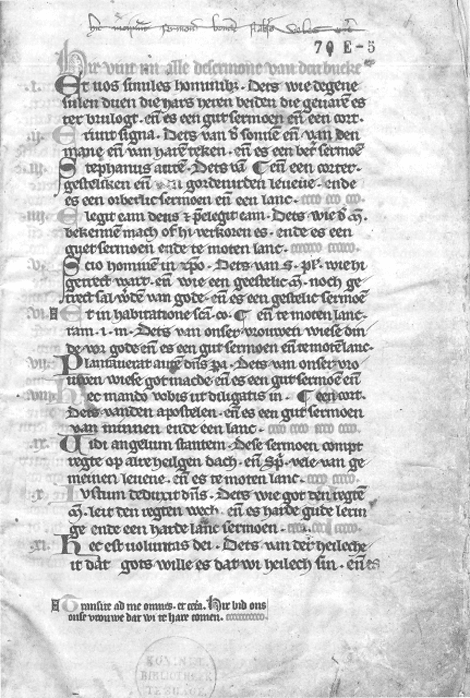 70 E-5
Hir vint mē alle de sermone van den bucke
.i. Et uos similes hominibꝫ · Dets wie degene
sulen duen die hars heren beiden die genarē es
ter bruilogt · eñ es een gut sermoen eñ een cort ·
.ij. Erunt signa · Dets van d' sonnē eñ van den
manē eñ van harē teken · eñ es een bet' sermoē
.iij. Stephanus autē · Dets vā eñ een corter ·
gesteliken eñ gordenirden leuene · ende
es een orberlic sermoen eñ een lanc ·
.iiij. Elegit eam deus ⁊ p̄elegit eam · Dets wie d' m̄ ·
bekennen mach of hi verkoren es · ende es een
guet sermoen ende te moten lanc ·
.v. Scio hominem in xp̄o · Dets van S · pl' · wie hi
getrect wart · eñ wie een geestelic m̄ · noch ge
trect sal w'den van gode · eñ es een gestelic sermoē
Et in habitatione scā · eñ te moten lanc ·
ram · i · m · Dets van onser vrouwen wiese din
de vor gode eñ es een gut sermoen eñ te motē lanc ·
.vij. Plantauerat autē dn̄s pa · Dets van onser vro
uwen wiese got macde eñ es een gut sermoē eñ
.viij. Hec mando vobis ut diligatis in · een cort ·
Dets vanden apostelen · eñ es een gut sermoen
van minnen ende een lanc ·
.ix. Uidi angelum stantem · Dese sermoen compt
regte op alre heilgen dach · eñ sp̄ · vele van ge
meinen leuene · eñ es te moten lanc ·
.x. Iustum deduxit dn̄s · Dets wie got den regtē
m̄ · leit den regten wech · eñ es harde gute lerin
ge ende een harde lanc sermoen ·
.xi. Hec est voluntas dei · Dets van der heileche
it dat gots wille es dat wi heilech sin · eñ es
Transite ad me omnes · et cetā · Hir bid ons
onse vrouwe dat wi te hare comen ·
KONINKL.
BIBLIOTHEEK
TE HAGE